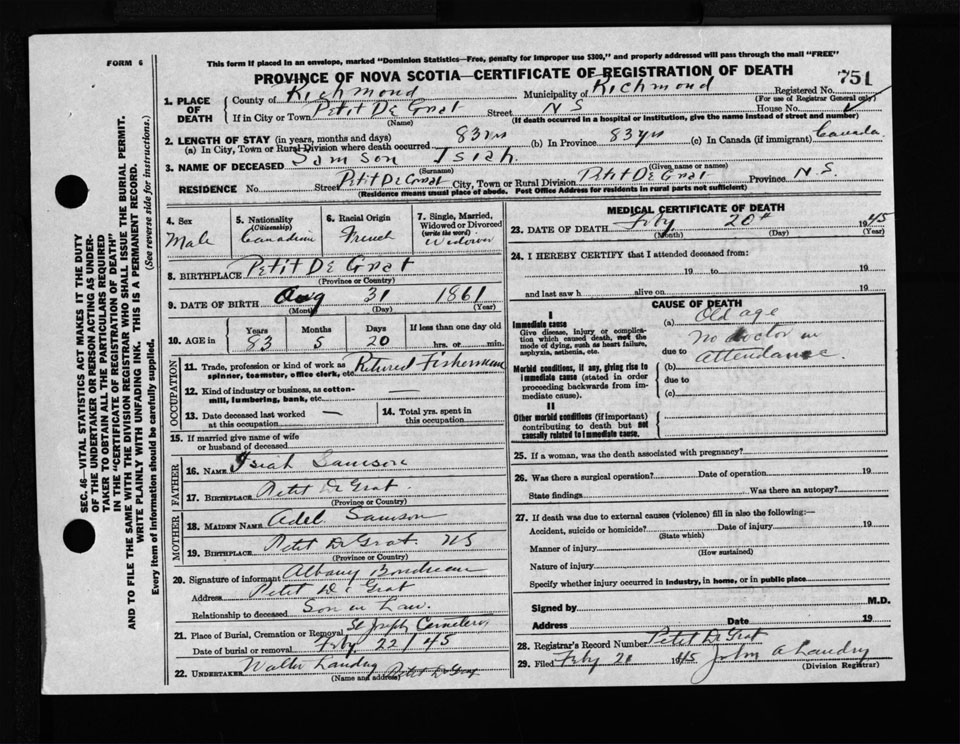 FORM 6
This form if placed in an envelope, marked "Dominion Statistics—Free, penalty for improper use $300," and properly addressed will pass through the mail "FREE"
PROVINCE OF NOVA SCOTIA—CERTIFICATE OF REGISTRATION OF DEATH
751
1. PLACE OF DEATH
County of Richmond Municipality of Richmond Registered No.
(For use of Registrar General only)
If in City or Town Petit De Grat Street N S House No.
(Name) (If death occurred in a hospital or institution, give the name instead of street and number)
2. LENGTH OF STAY (in years, months and days)
(a) In City, Town or Rural Division where death occurred 83 yrs (b) In Province 83 yrs (c) In Canada (if immigrant) Canada
3. NAME OF DECEASED Samson Isiah
(Surname) (Given name or names)
RESIDENCE No. Street Petit De Grat City, Town or Rural Division Petit De Grat Province N.S.
(Residence means usual place of abode. Post Office Address for residents in rural parts not sufficient)
4. Sex Male
5. Nationality (Citizenship) Canadian
6. Racial Origin French
7. Single, Married, Widowed or Divorced (write the word) Widower
8. BIRTHPLACE Petit De Grat
(Province or Country)
9. DATE OF BIRTH Aug 31 1861
(Month) (Day) (Year)
10. AGE in Years 83 Months 5 Days 20 If less than one day old hrs. or min.
OCCUPATION
11. Trade, profession or kind of work as spinner, teamster, office clerk, etc. Retired Fisherman
12. Kind of industry or business, as cotton-mill, lumbering, bank, etc. —
13. Date deceased last worked at this occupation —
14. Total yrs. spent in this occupation
15. If married give name of wife or husband of deceased
FATHER
16. NAME Isiah Samson
17. BIRTHPLACE Petit De Grat
(Province or Country)
MOTHER
18. MAIDEN NAME Adel Samson
19. BIRTHPLACE Petit De Grat NS
(Province or Country)
20. Signature of informant Albany Boudreau
Address Petit De Grat
Relationship to deceased Son in Law.
21. Place of Burial, Cremation or Removal St Joseph Cemetery
Date of burial or removal Feby 22/45
22. UNDERTAKER Walter Landry Petit De Grat
(Name and address)
MEDICAL CERTIFICATE OF DEATH
23. DATE OF DEATH Feby 20th 1945
(Month) (Day) (Year)
24. I HEREBY CERTIFY that I attended deceased from:
19 to 19
and last saw h alive on 19
CAUSE OF DEATH
I
Immediate cause
Give disease, injury or complication which caused death, not the mode of dying, such as heart failure, asphyxia, asthenia, etc.
(a) Old age
No doctor in
due to Attendance.
Morbid conditions, if any, giving rise to immediate cause (stated in order proceeding backwards from immediate cause).
(b)
due to
(c)
II
Other morbid conditions (if important) contributing to death but not causally related to immediate cause.
25. If a woman, was the death associated with pregnancy?
26. Was there a surgical operation? Date of operation 19
State findings Was there an autopsy?
27. If death was due to external causes (violence) fill in also the following:—
Accident, suicide or homicide? Date of injury 19
(State which)
Manner of injury
(How sustained)
Nature of injury
Specify whether injury occurred in industry, in home, or in public place
Signed by M.D.
Address Date 19
28. Registrar's Record Number Petit De Grat
29. Filed Feby 1945 John A Landry
(Division Registrar)
SEC. 46—VITAL STATISTICS ACT MAKES IT THE DUTY
OF THE UNDERTAKER OR PERSON ACTING AS UNDER-
TAKER TO OBTAIN ALL THE PARTICULARS REQUIRED
IN THE "CERTIFICATE OF REGISTRATION OF DEATH"
AND TO FILE THE SAME WITH THE DIVISION REGISTRAR WHO SHALL ISSUE THE BURIAL PERMIT.
WRITE PLAINLY WITH UNFADING INK. THIS IS A PERMANENT RECORD.
Every item of information should be carefully supplied. (See reverse side for instructions.)